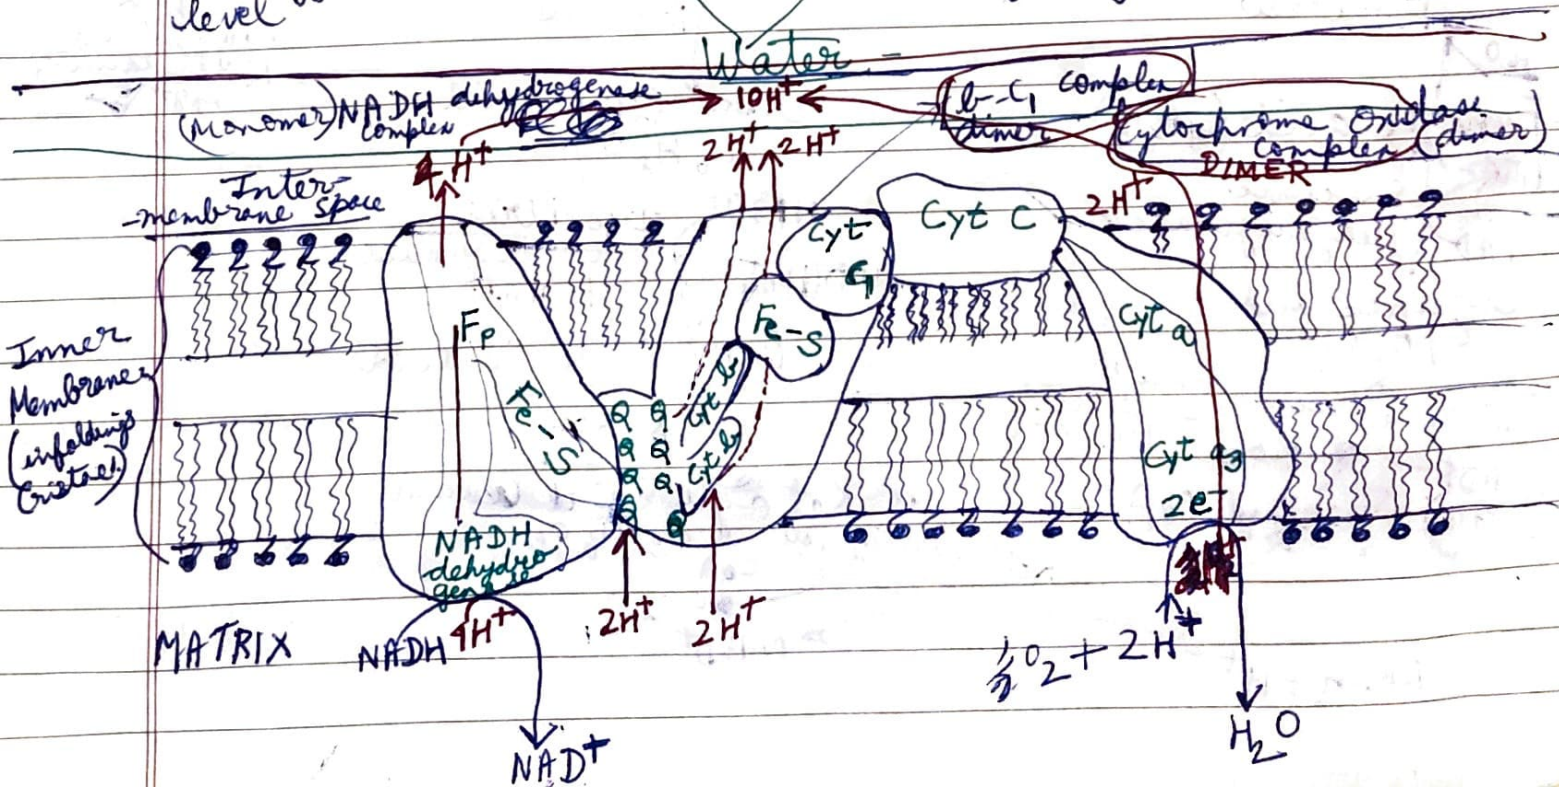 level
Water -
(Monomer) NADH dehydrogenase
complex
10H+
b-C1 complex
dimer
Cytochrome Oxidase
Complex (dimer)
DIMER
4H+
2H+ 2H+
2H+
Inter-
-membrane space
Cyt
C1
Cyt C
Fp
Fe-S
Fe-S
Cyt a
Inner
Membrane
(infoldings
Cristae)
Q Q
Q Q
Q Q
Q Q
Cyt b
Cyt b
Cyt a3
2e-
NADH
dehydro
genase
MATRIX
NADH
4H+
2H+
2H+
½O2 + 2H+
NAD+
H2O